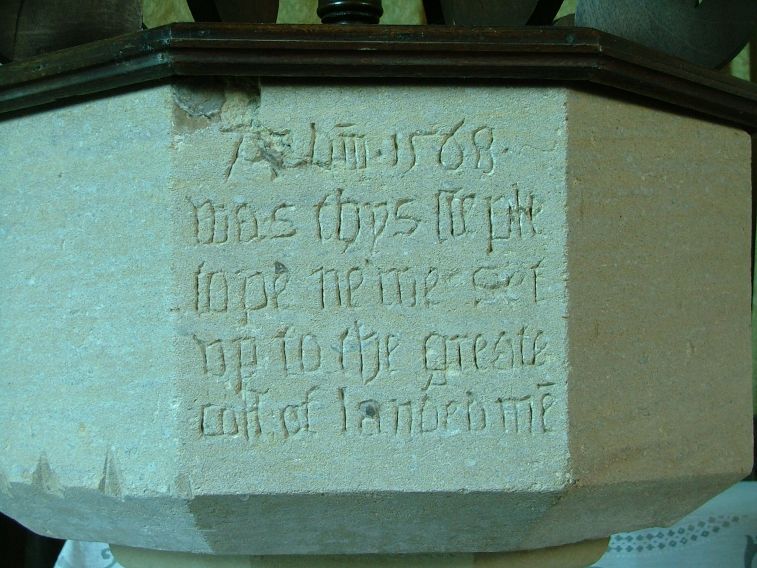 1568
was thys steple
tope set
up to the greate
cost of landed mē